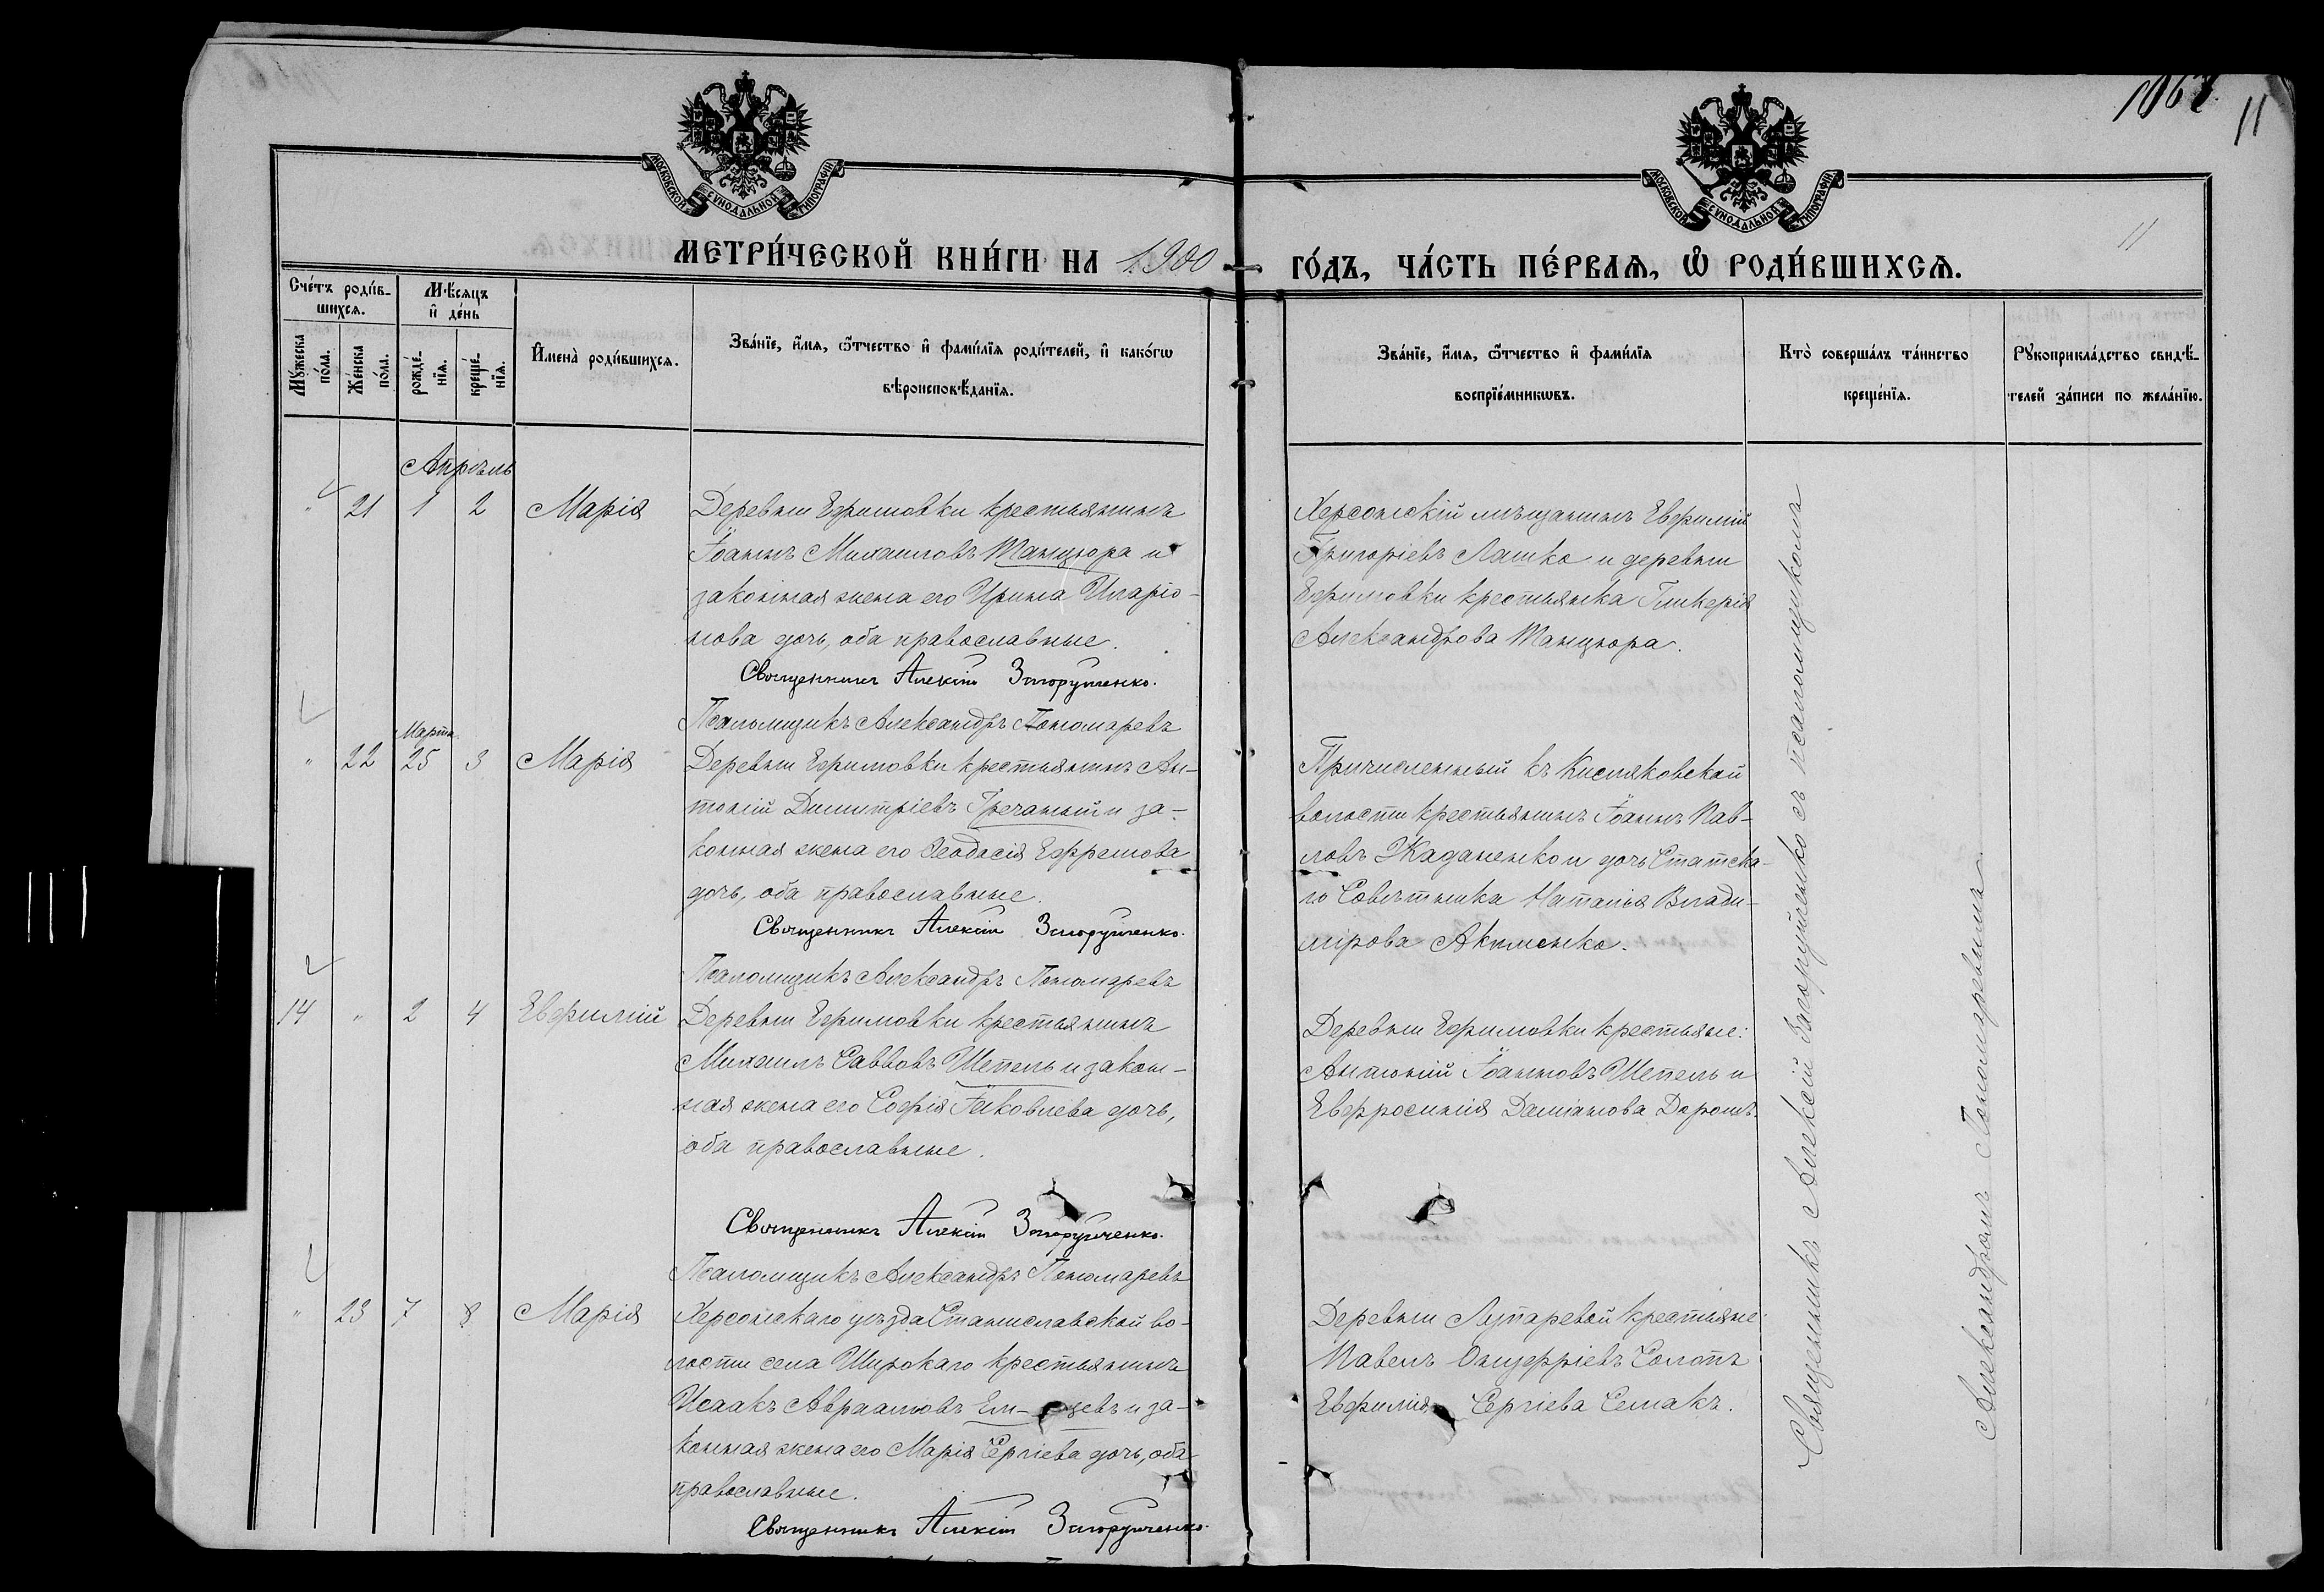 1068
11
11
МОСКОВСКОЙ СѴНОДАЛЬНОЙ ТИПОГРАФІИ
МОСКОВСКОЙ СѴНОДАЛЬНОЙ ТИПОГРАФІИ
МЕТРИ́ЧЕСКОЙ КНИ́ГИ НА 1900
ГО́ДЪ, ЧА́СТЬ ПЕ́РВАЯ, Ѡ РОДИ́ВШИХСЯ.
Сче́тъ роди́в-
шихся.
Мꙋ́жеска
по́ла.
Же́нска
по́ла.
Мѣ́сяцъ
и҆ де́нь
рожде́-
нїя.
креще́-
нїя.
И҆мена̀ роди́вшихся.
Зва́нїе, и҆́мя, ѻ҆́тчество и҆ фами́лїя роди́телей, и҆ како́гѡ
вѣроисповѣ́данїя.
Зва́нїе, и҆́мя, ѻ҆́тчество и҆ фами́лїя
воспрїе́мникѡвъ.
Кто̀ соверша́лъ та́инство
креще́нїя.
Рꙋкоприкла́дство свидѣ́-
телей за́писи по жела́нїю.
Апрѣль
" 21 1 2 Марія
Деревни Ефимовки крестьянинъ
Іоаннъ Михаиловъ Танцюра и
законная жена его Ирина Иларіо-
нова дочь, оба православные.
Священникъ Алексій Запорущенко.
Псаломщикъ Александръ Пономаревъ
Херсонскій мѣщанинъ Евфимій
Григоріевъ Лашко и деревни
Ефимовки крестьянка Гликерія
Александрова Танцюра.
Марта
" 22 25 3 Марія
Деревни Ефимовки крестьянинъ Ан-
тоній Димитріевъ Гречаный и за-
конная жена его Ѳеодосія Ефремова
дочь, оба православные.
Священникъ Алексій Запорущенко.
Псаломщикъ Александръ Пономаревъ
Причисленный къ Кисляковской
волости крестьянинъ Іоаннъ Пав-
ловъ Жаданенко и дочь Статска-
го Совѣтника Наталія Влади-
мірова Акименко.
14 " 2 4 Евфимій
Деревни Ефимовки крестьянинъ
Михаилъ Саввовъ Шепель и закон-
ная жена его Софія Іаковлева дочь,
оба православные.
Священникъ Алексій Запорущенко.
Псаломщикъ Александръ Пономаревъ
Деревни Ефимовки крестьяне:
Іоанновъ Шепель и
Евфросинія Даміанова Дорошъ.
" 23 7 8 Марія
Херсонскаго уѣзда Станиславской во-
лости села Широкаго крестьянинъ
Исаакъ Авраамовъ и за-
конная жена его Марія Сергіева дочь, оба
православные.
Священникъ Алексій Запорущенко.
Деревни Лупаревой крестьяне:
Павелъ Онуфріевъ Солопъ
Евфимія Сергіева Семакъ.
Священникъ Алексій Запорущенко съ псаломщикомъ
Александромъ Пономаревымъ.